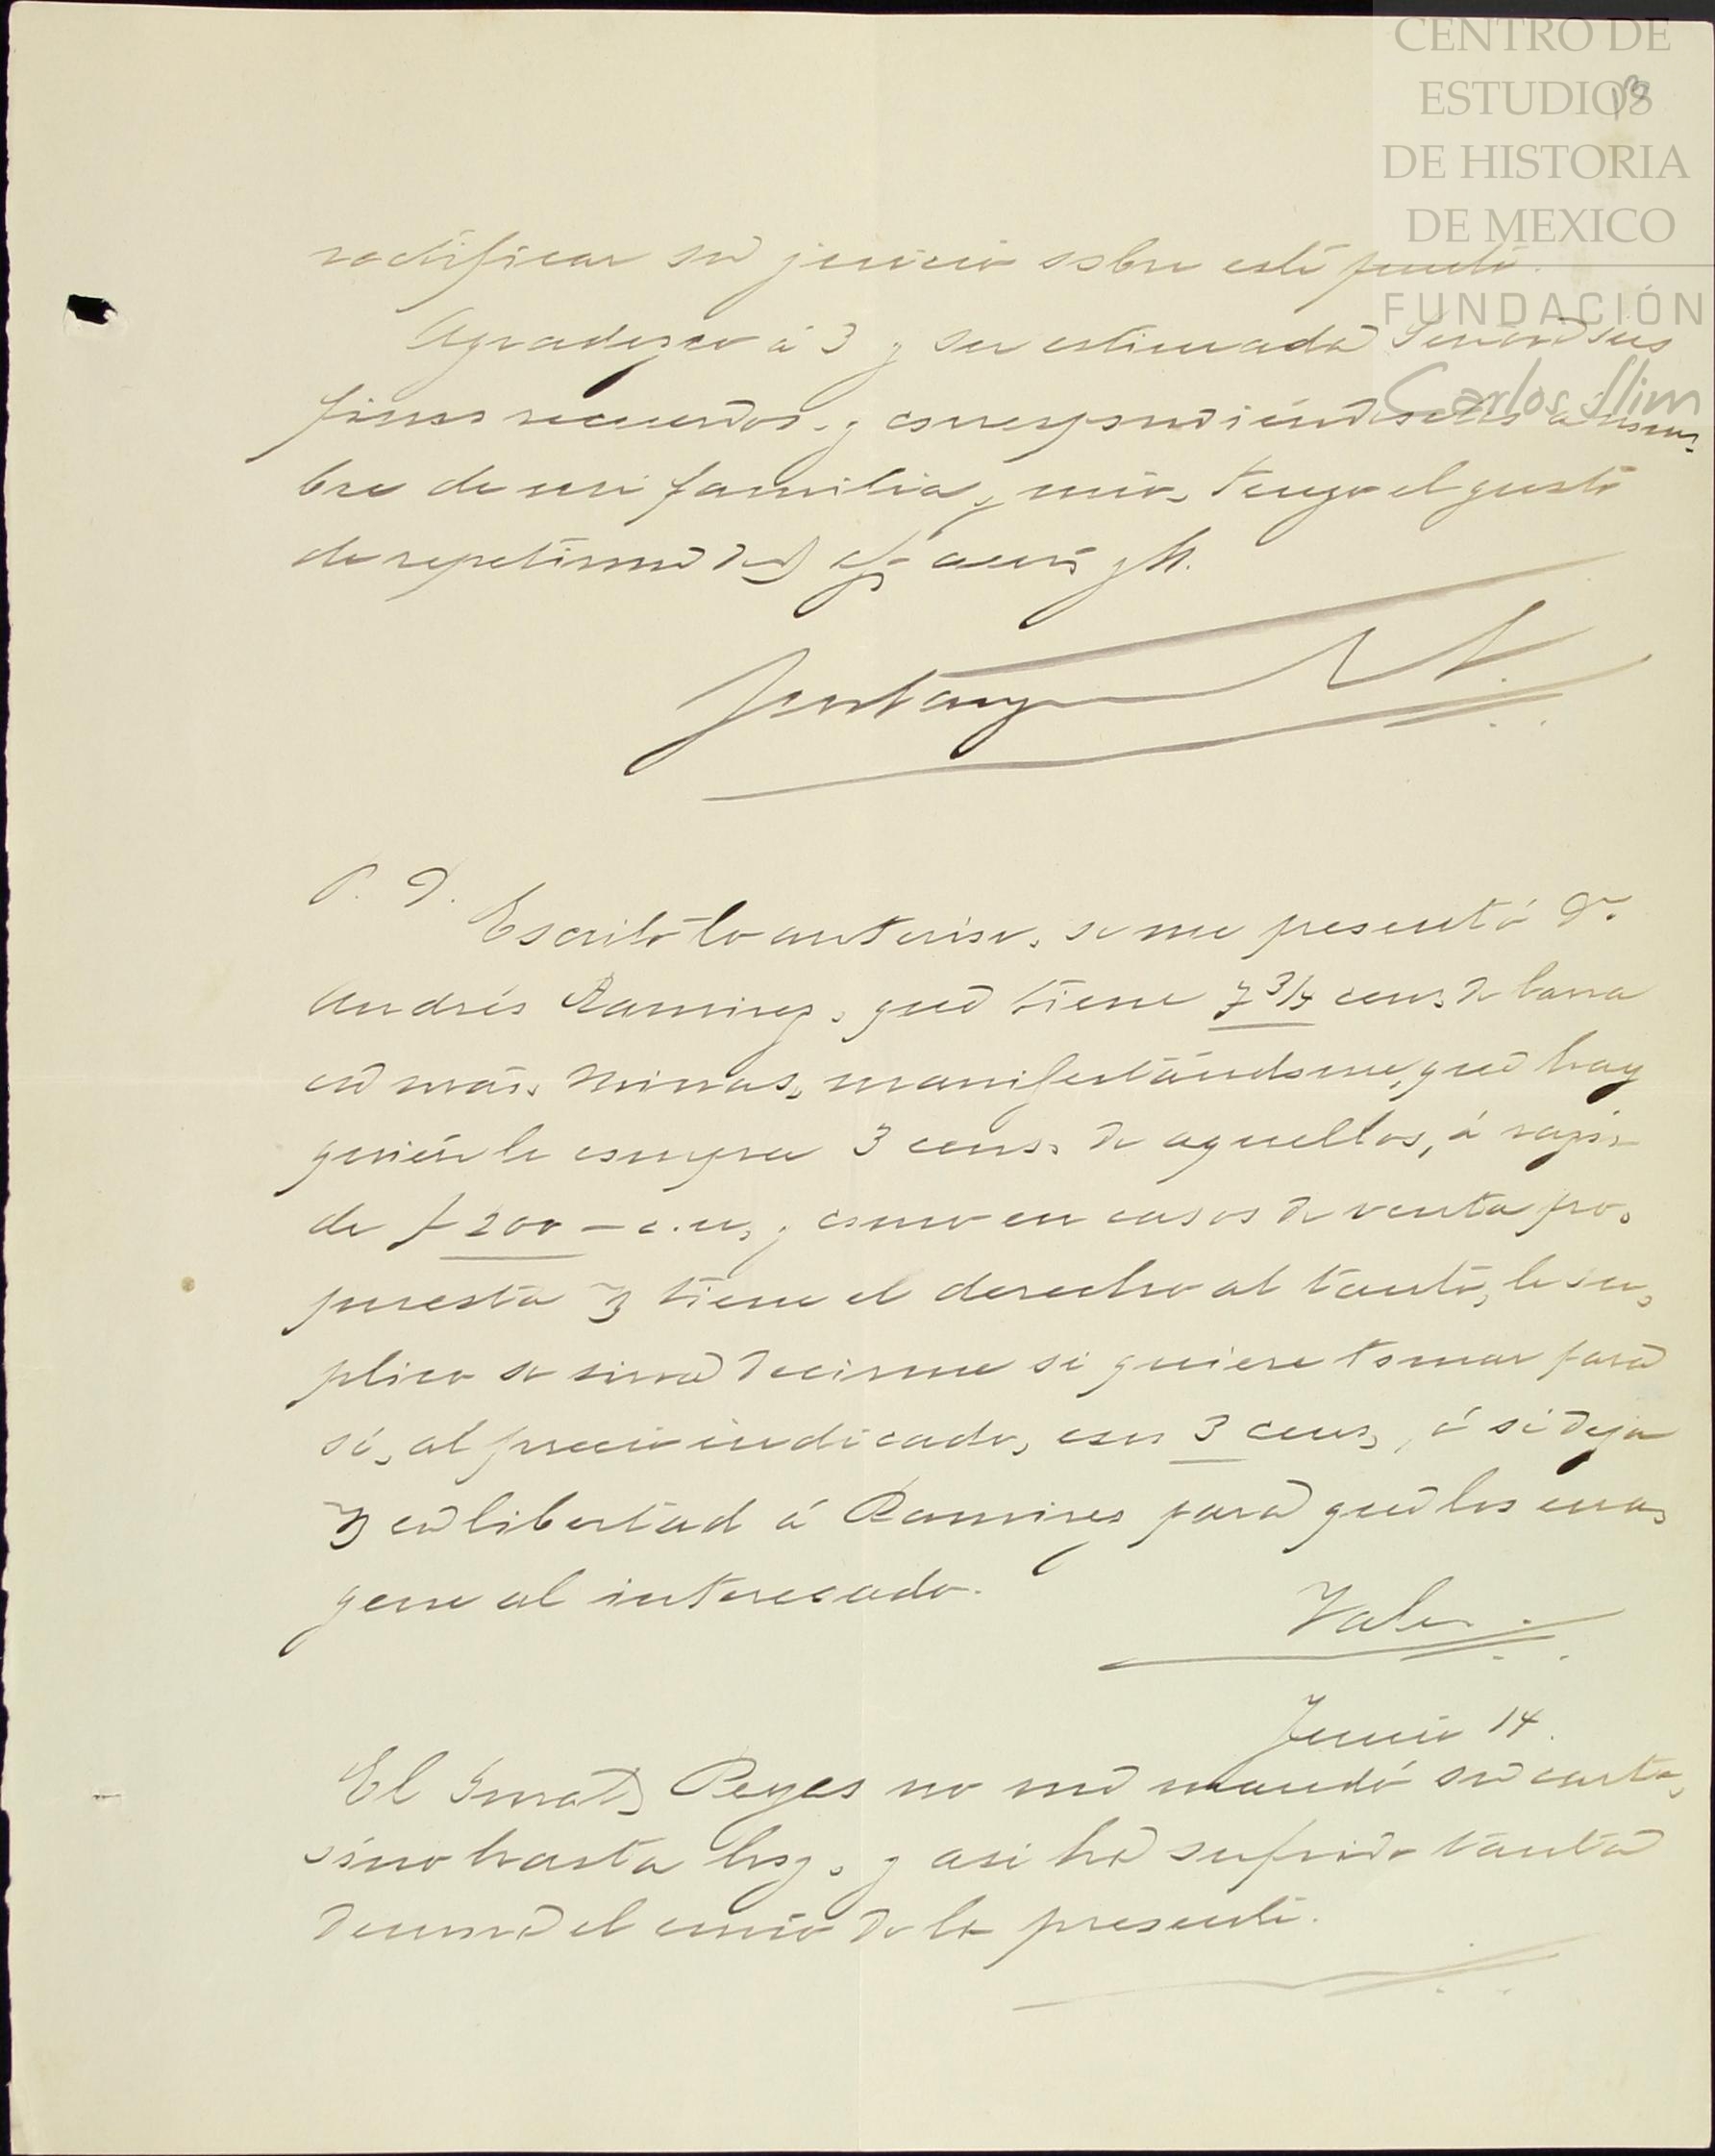 CENTRO DE
ESTUDIOS
DE HISTORIA
DE MEXICO
FUNDACIÓN
Carlos Slim
13
rectificar su juicio sobre este punto.
Agradezco á V y su estimada Señora sus
finos recuerdos, y correspondiéndoselos á nom-
bre de mi familia y mio, tengo el gusto
de repetirme de V af amo y S.
P. D.
Escrito lo anterior, se me presentó Dn
Andrés Ramirez, que tiene 7 3/4 cens de barra
en más minas, manifestándome, que hay
quien le compra 3 cens. de aquellos, á razón
de $ 200 — c.u, y como en casos de venta pro-
puesta V tiene el derecho al tanto, le su-
plico se sirva decirme si quiere tomar para
sí, al precio indicado, esos 3 cens, ó si deja
V en libertad á Ramirez para que los ena-
gene al interesado.
Vale
Junio 14.
El Gnral Reyes no me mandó su carta,
sino hasta hoy, y asi ha sufrido tanta
demora el envío de la presente.